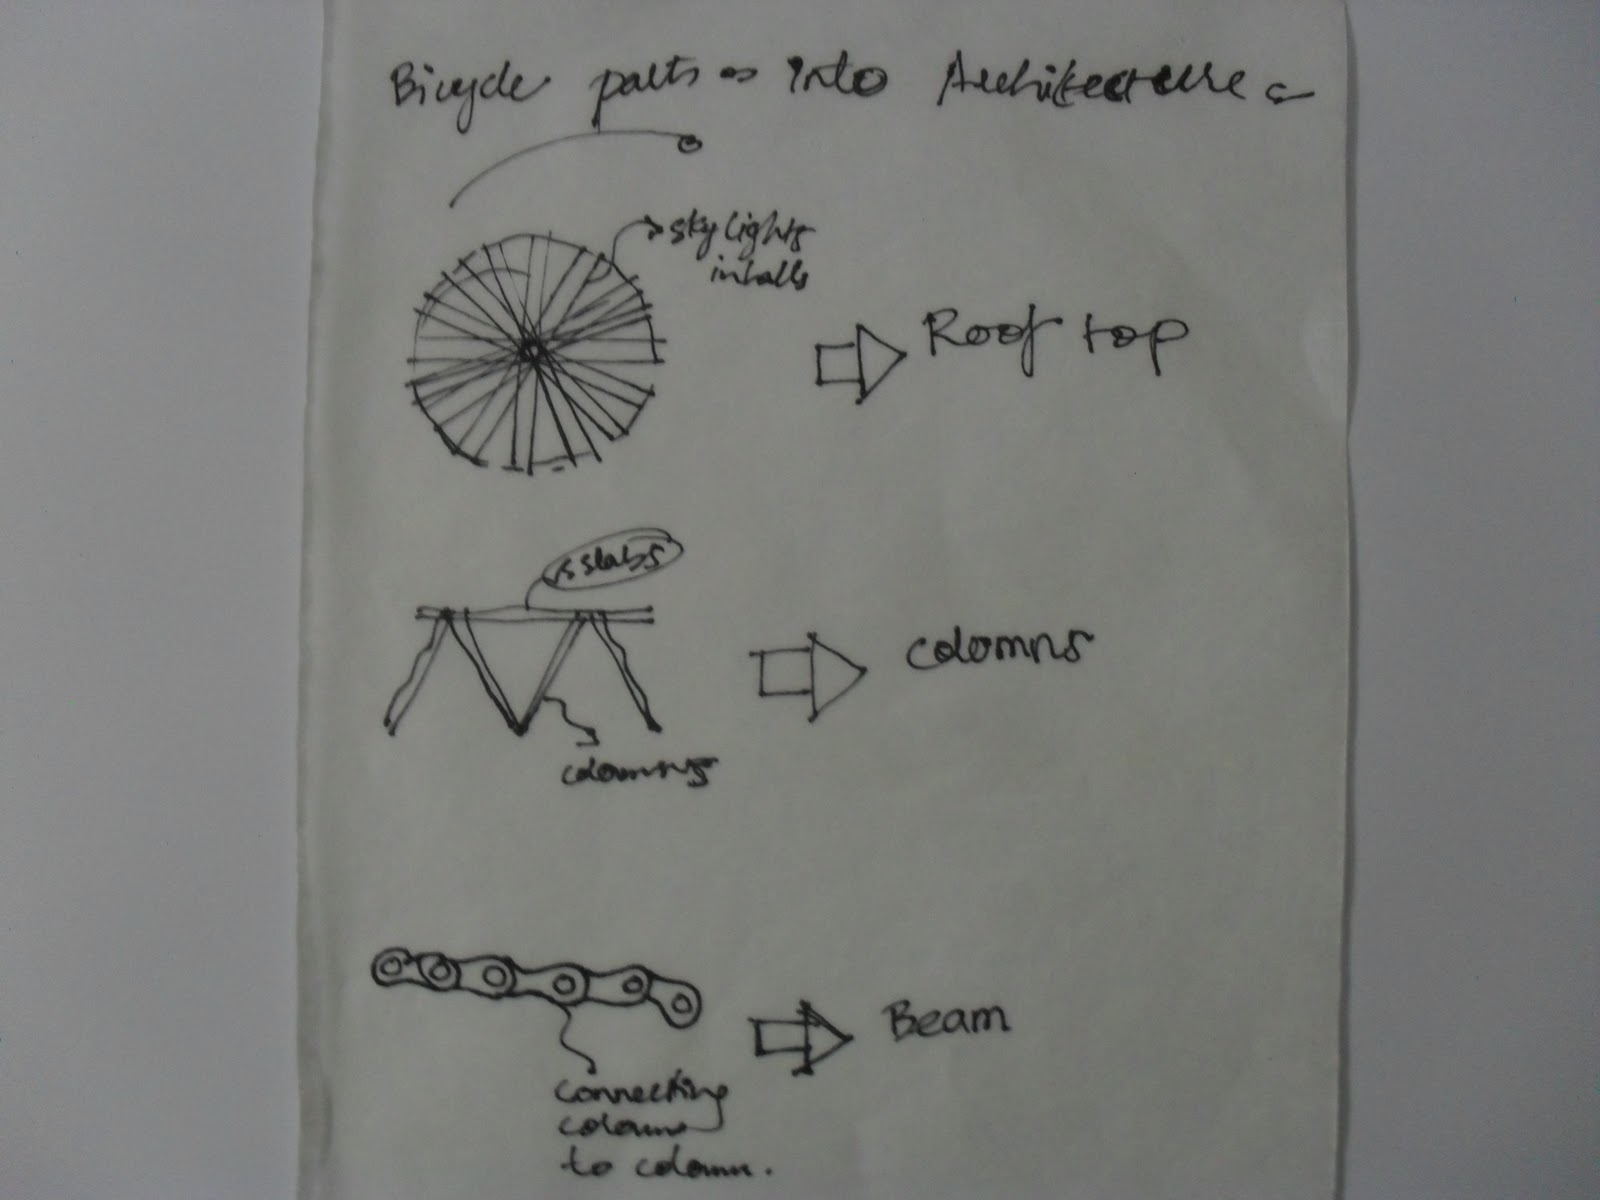 Bicycle parts into Architecture
sky lights
in halls
Roof top
slabs
colomns
colomns
Beam
connecting
colomn
to colomn.